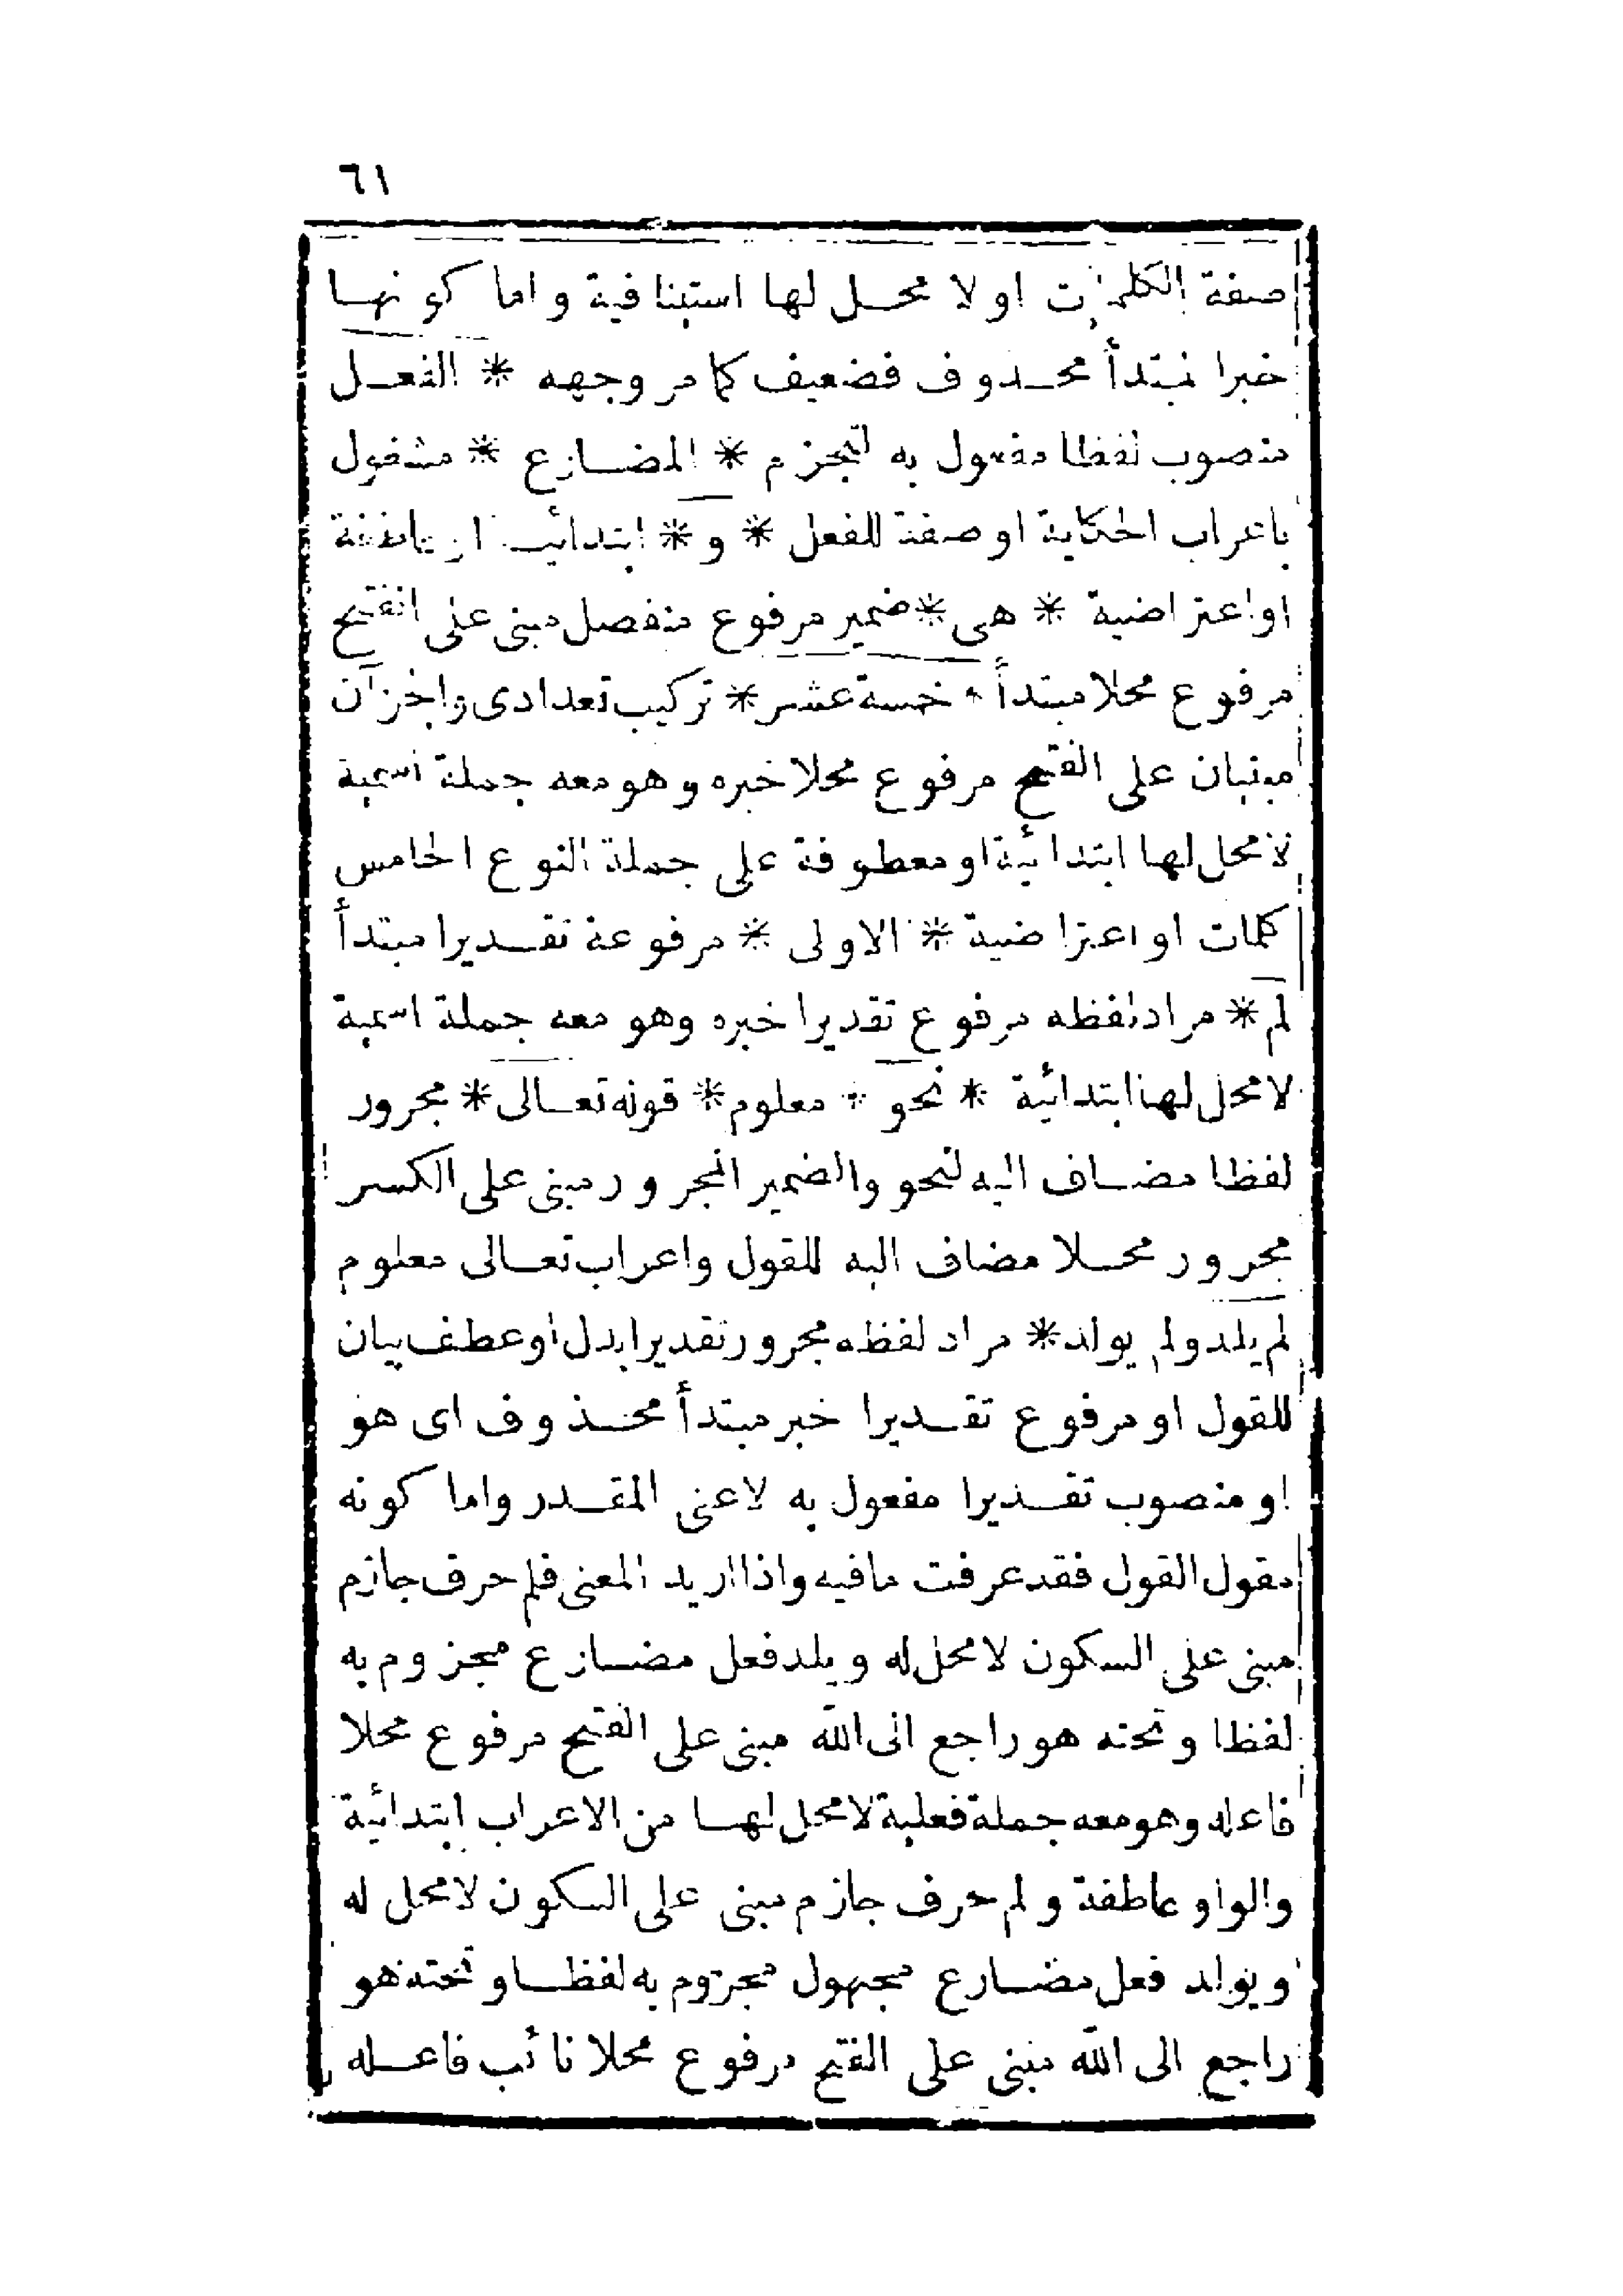 ٦١
صفة الكلمات او لا محل لها استينافية واما كونها
خبرا لمبتدأ محذوف فضعيف كما مر وجهه * الفعل
منصوب لفظا مفعول به لتجزم * المضارع * مشغول
باعراب الحكاية او صفة للفعل * و * ابتدائية او عاطفة
او اعتراضية * هى * ضمير مرفوع منفصل مبنى على الفتح
مرفوع محلا مبتدأ * خمسة عشر * تركيب تعدادى واخزآن
مبنيان على الفتح مرفوع محلا خبره وهو معه جملة اسمية
لا محل لها ابتدائية او معطوفة على جملة النوع الخامس
كلمات او اعتراضية * الاولى * مرفوعة تقديرا مبتدأ
لم * مراد لفظه مرفوع تقديرا خبره وهو معه جملة اسمية
لا محل لها ابتدائية * نحو * معلوم * قوله تعالى * مجرور
لفظا مضاف اليه لنحو والضمير المجرور مبنى على الكسر
مجرور محلا مضاف اليه للقول واعراب تعالى معلوم
لم يلد ولم يولد * مراد لفظه مجرور تقديرا بدل او عطف بيان
للقول او مرفوع تقديرا خبر مبتدأ محذوف اى هو
او منصوب تقديرا مفعول به لاعنى المقدر واما كونه
مقول القول فقد عرفت ما فيه واذا اريد المعنى فلم حرف جازم
مبنى على السكون لا محل له ويلد فعل مضارع مجزوم به
لفظا وتحته هو راجع الى الله مبنى على الفتح مرفوع محلا
فاعله وهو معه جملة فعلية لا محل لها من الاعراب ابتدائية
والواو عاطفة ولم حرف جازم مبنى على السكون لا محل له
ويولد فعل مضارع مجهول مجزوم به لفظا وتحته هو
راجع الى الله مبنى على الفتح مرفوع محلا نائب فاعله